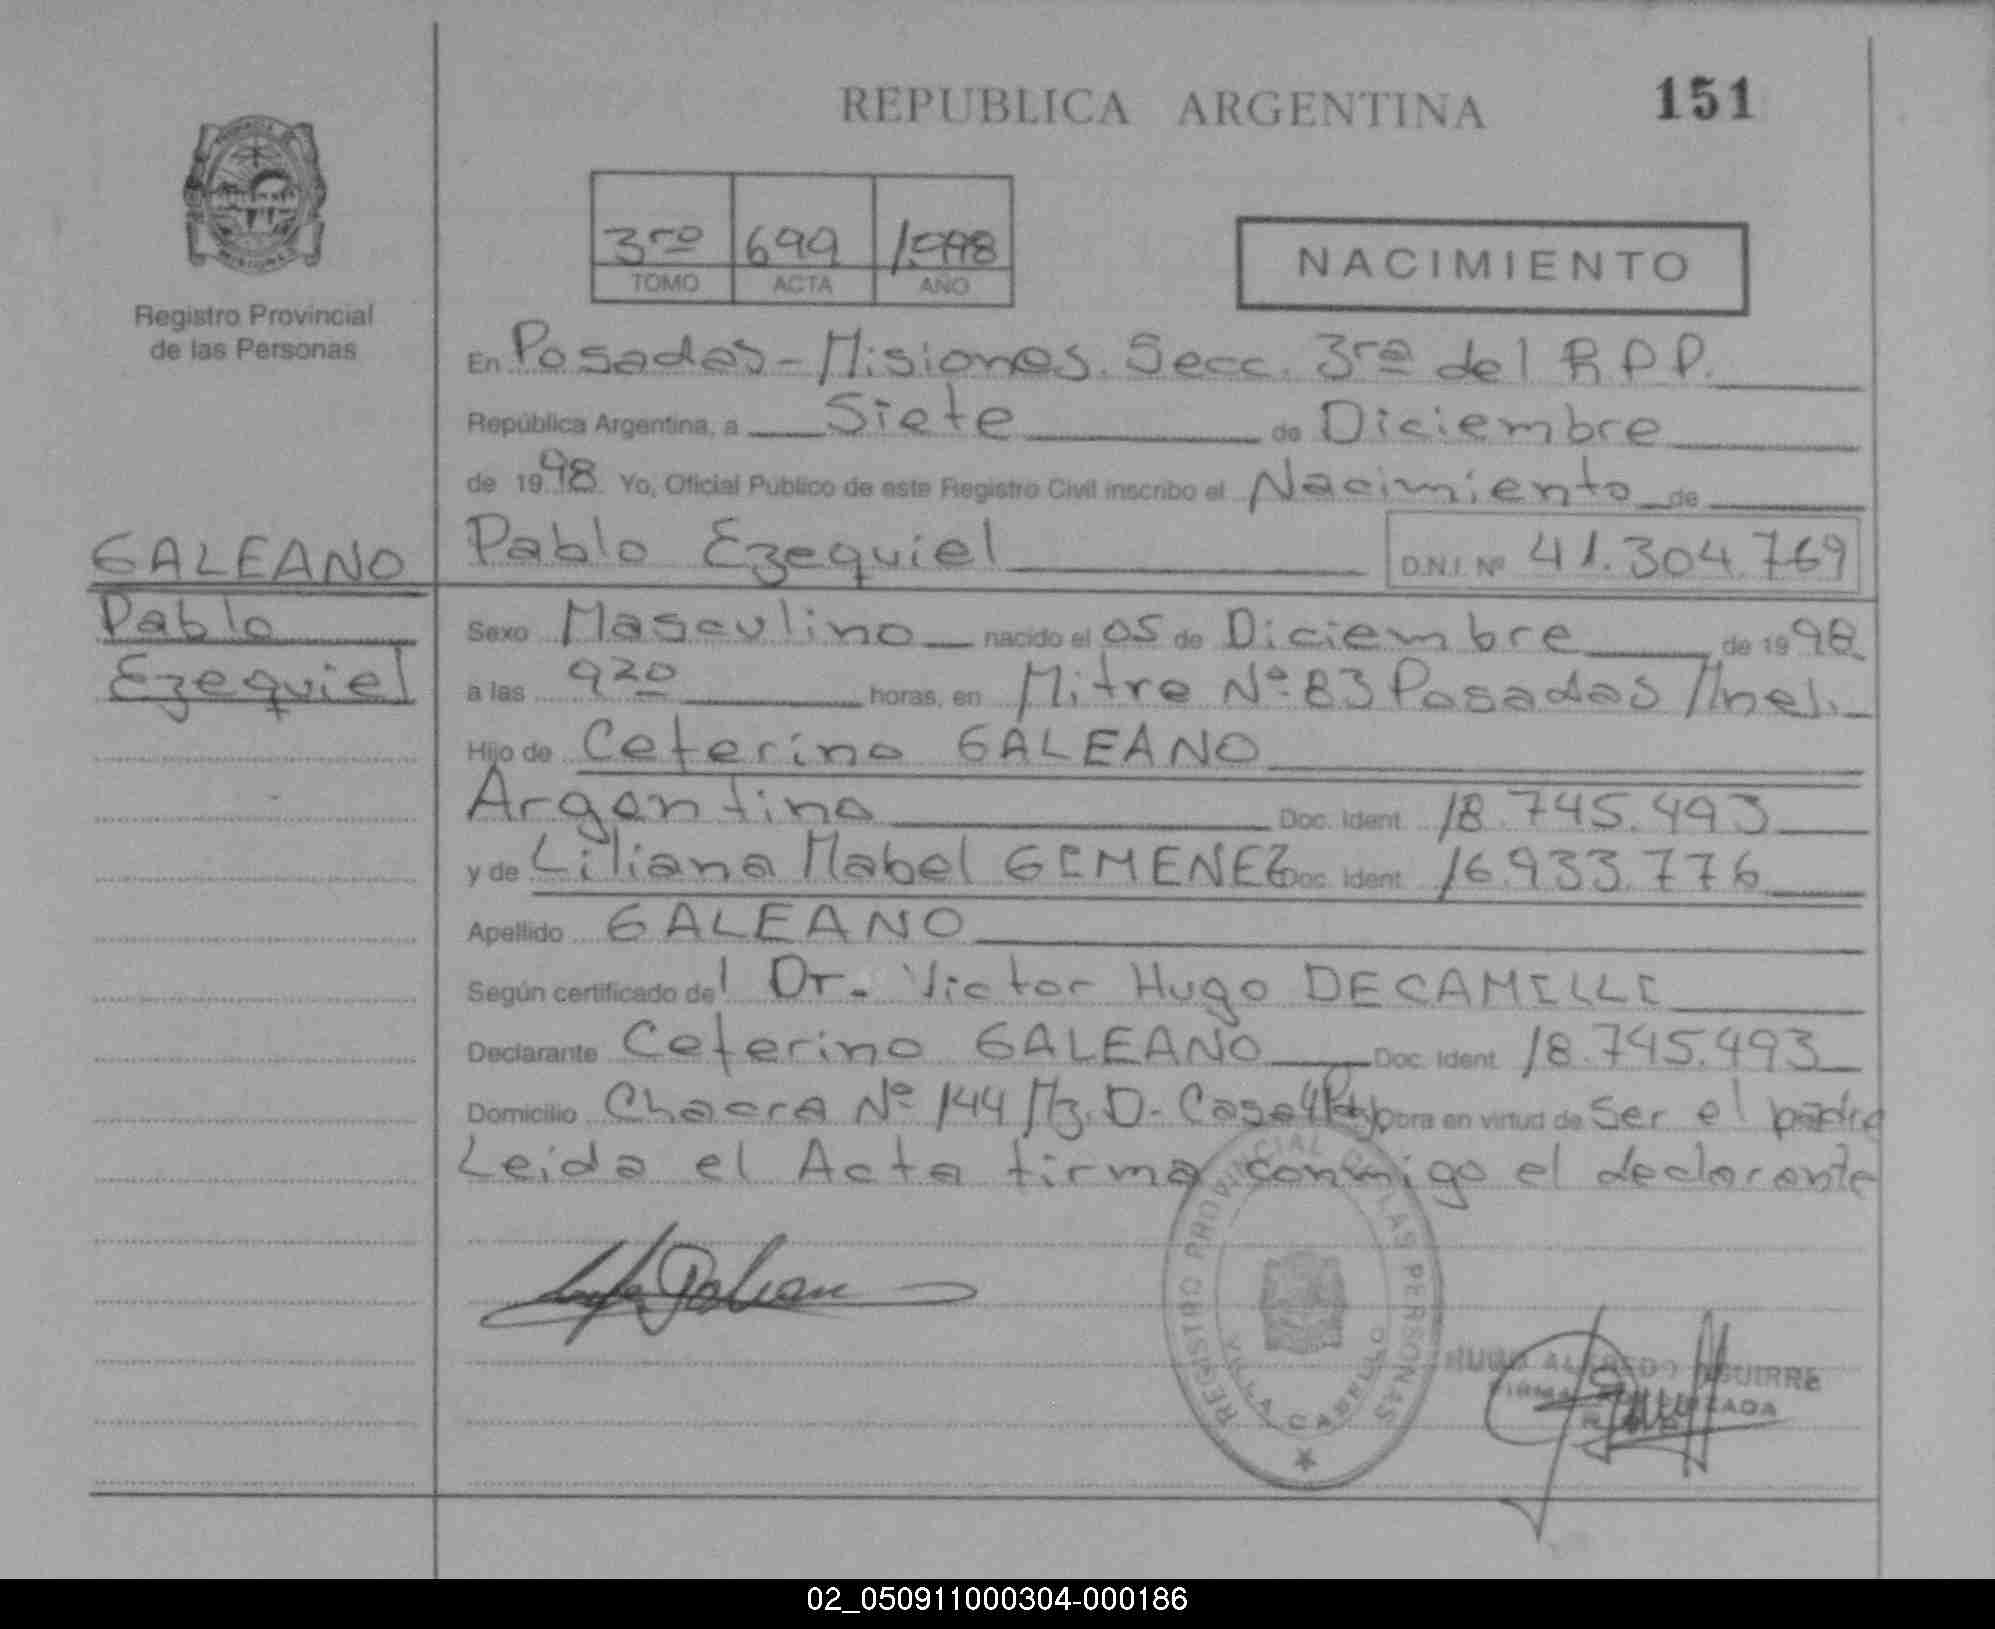 REPUBLICA ARGENTINA
151
3ro 699 1998
TOMO ACTA AÑO
NACIMIENTO
MISIONES
Registro Provincial
de las Personas
En Posadas - Misiones. Secc. 3ra del R.P.P.
República Argentina, a Siete de Diciembre
de 1998 Yo, Oficial Público de este Registro Civil inscribo el Nacimiento de
GALEANO
Pablo
Ezequiel
Pablo Ezequiel D.N.I. Nº 41.304.769
Sexo Masculino nacido el 05 de Diciembre de 1998
a las 920 horas, en Mitre Nº 83 Posadas
Hijo de Ceferino GALEANO
Argentino Doc. Ident. 18.745.493
y de Liliana Mabel GIMENEZ Doc. Ident. 16.933.776
Apellido GALEANO
Según certificado del Dr. Victor Hugo DECAMILLI
Declarante Ceferino GALEANO Doc. Ident. 18.745.493
Domicilio Chacra Nº 144 Mz. D - Casa obra en virtud de ser el padre
Leida el Acta firma conmigo el declarante
REGISTRO PROVINCIAL DE LAS PERSONAS
VILLA CABELLO
HUGO ALFREDO AGUIRRE
FIRMA AUTORIZADA
02_050911000304-000186